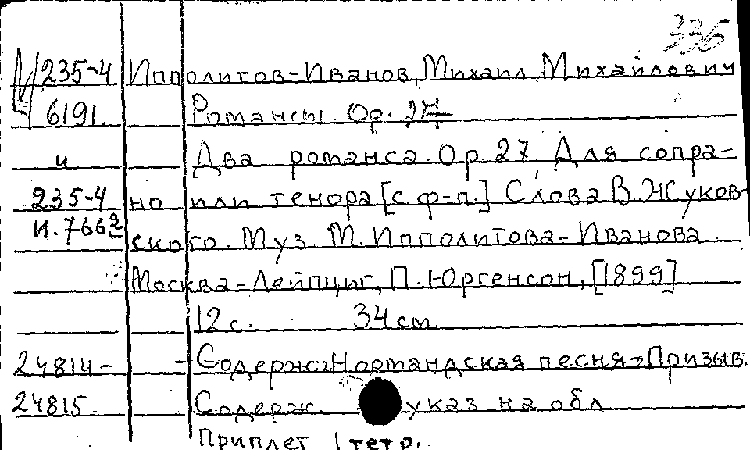 335
235-4 Ипполитов-Иванов, Михаил Михайлович
6191 Романсы. Ор. 27
и Два романса. Ор. 27. Для сопра-
235-4 но или тенора [с ф-п.] Слова В. Жуков-
И.7663 ского. Муз. М. Ипполитова-Иванова.
Москва-Лейпциг, П. Юргенсон, [1899]
12 с. 34 см
24814- - Содерж.: Нормандская песня. Призыв.
24815 Содерж. указ на обл
Приплет 1 тетр.